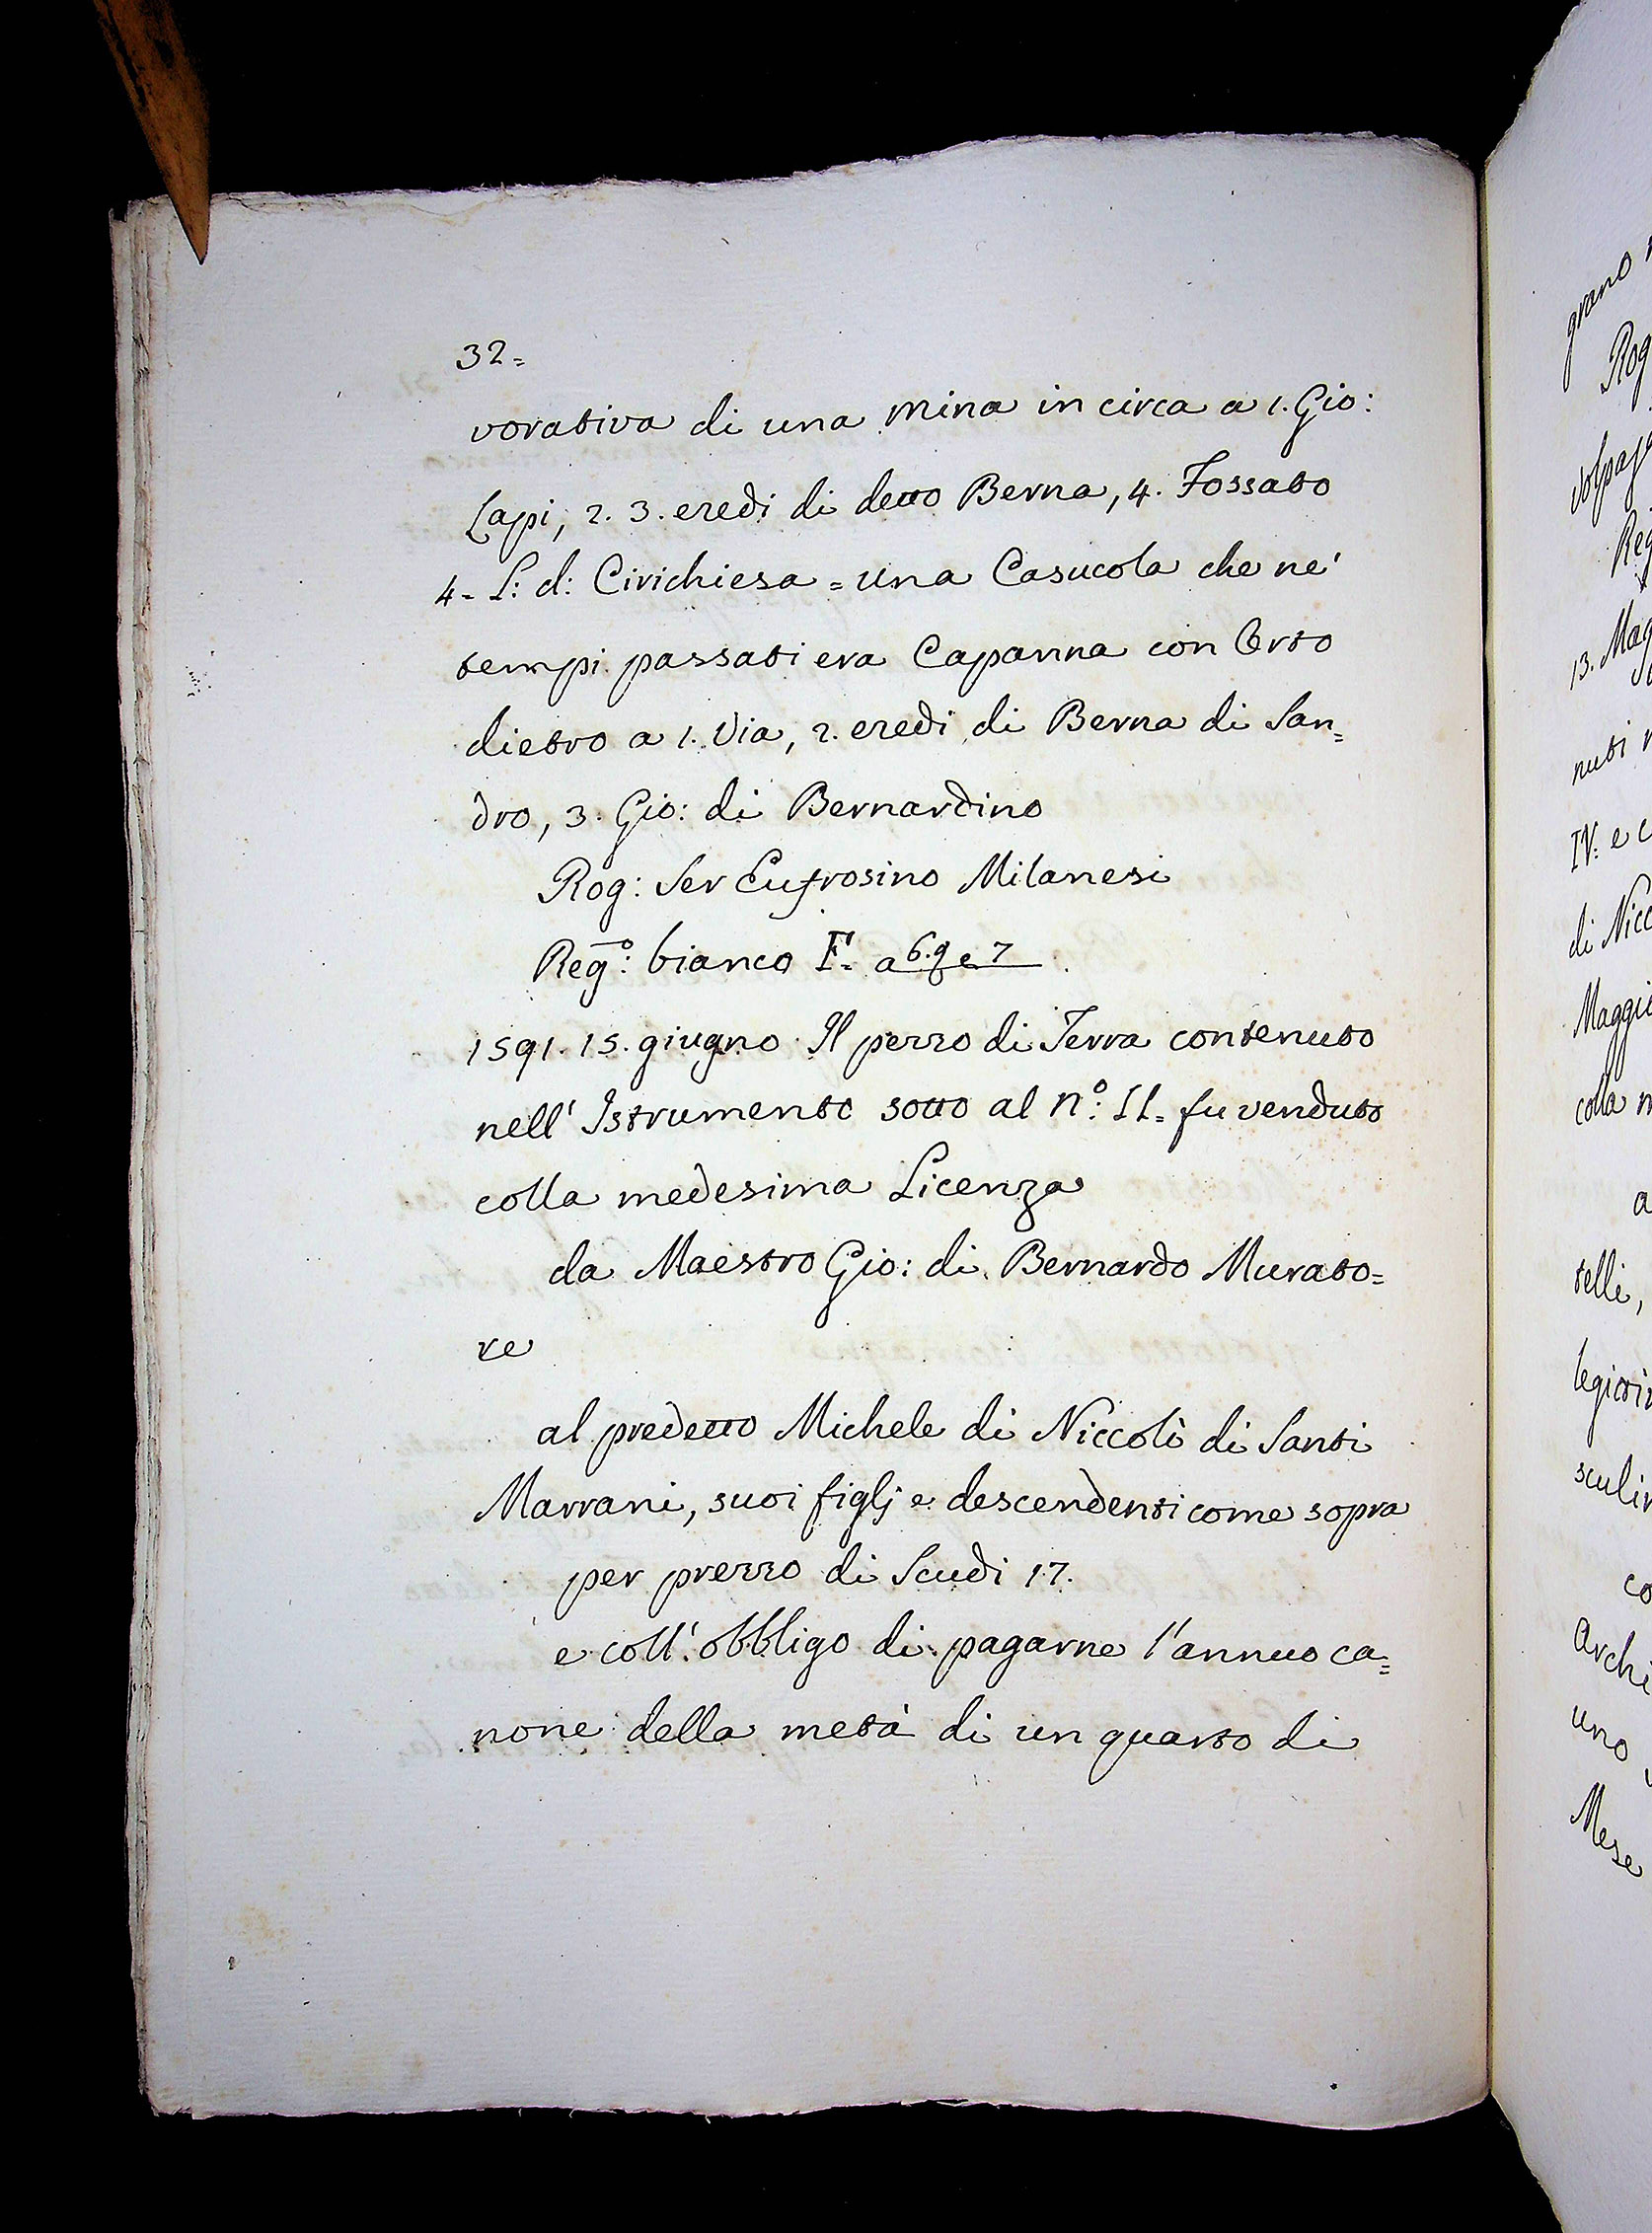 32=
vorativa di una mina in circa a 1. Gio:
Lapi, 2. 3. eredi di detto Berna, 4. Fossato
4= L: d: Cirichiesa = una Casucola che ne'
tempi passati era Capanna con Orto
dietro a 1. Via, 2. eredi di Berna di San=
dro, 3. Gio: di Bernardino
Rog: Ser Eufrosino Milanesi
Reg:º bianco F. a 6.9 e 7
1591. 15. giugno Il pezzo di Terra contenuto
nell' Istrumento sotto al nº: II= fu venduto
colla medesima Licenza
da Maestro Gio: di Bernardo Murato=
re
al predetto Michele di Niccolò di Santi
Marrani, suoi figlj e descendenti come sopra
per prezzo di Scudi 17.
e coll' obbligo di pagarne l'annuo ca=
none della metà di un quarto di
grano
Rog
volpaja
Reg
13. Mag
nuti
IV: e
di Nicc
Maggio
colla
telli,
legitti
sculi
co
Archi
uno
Mese